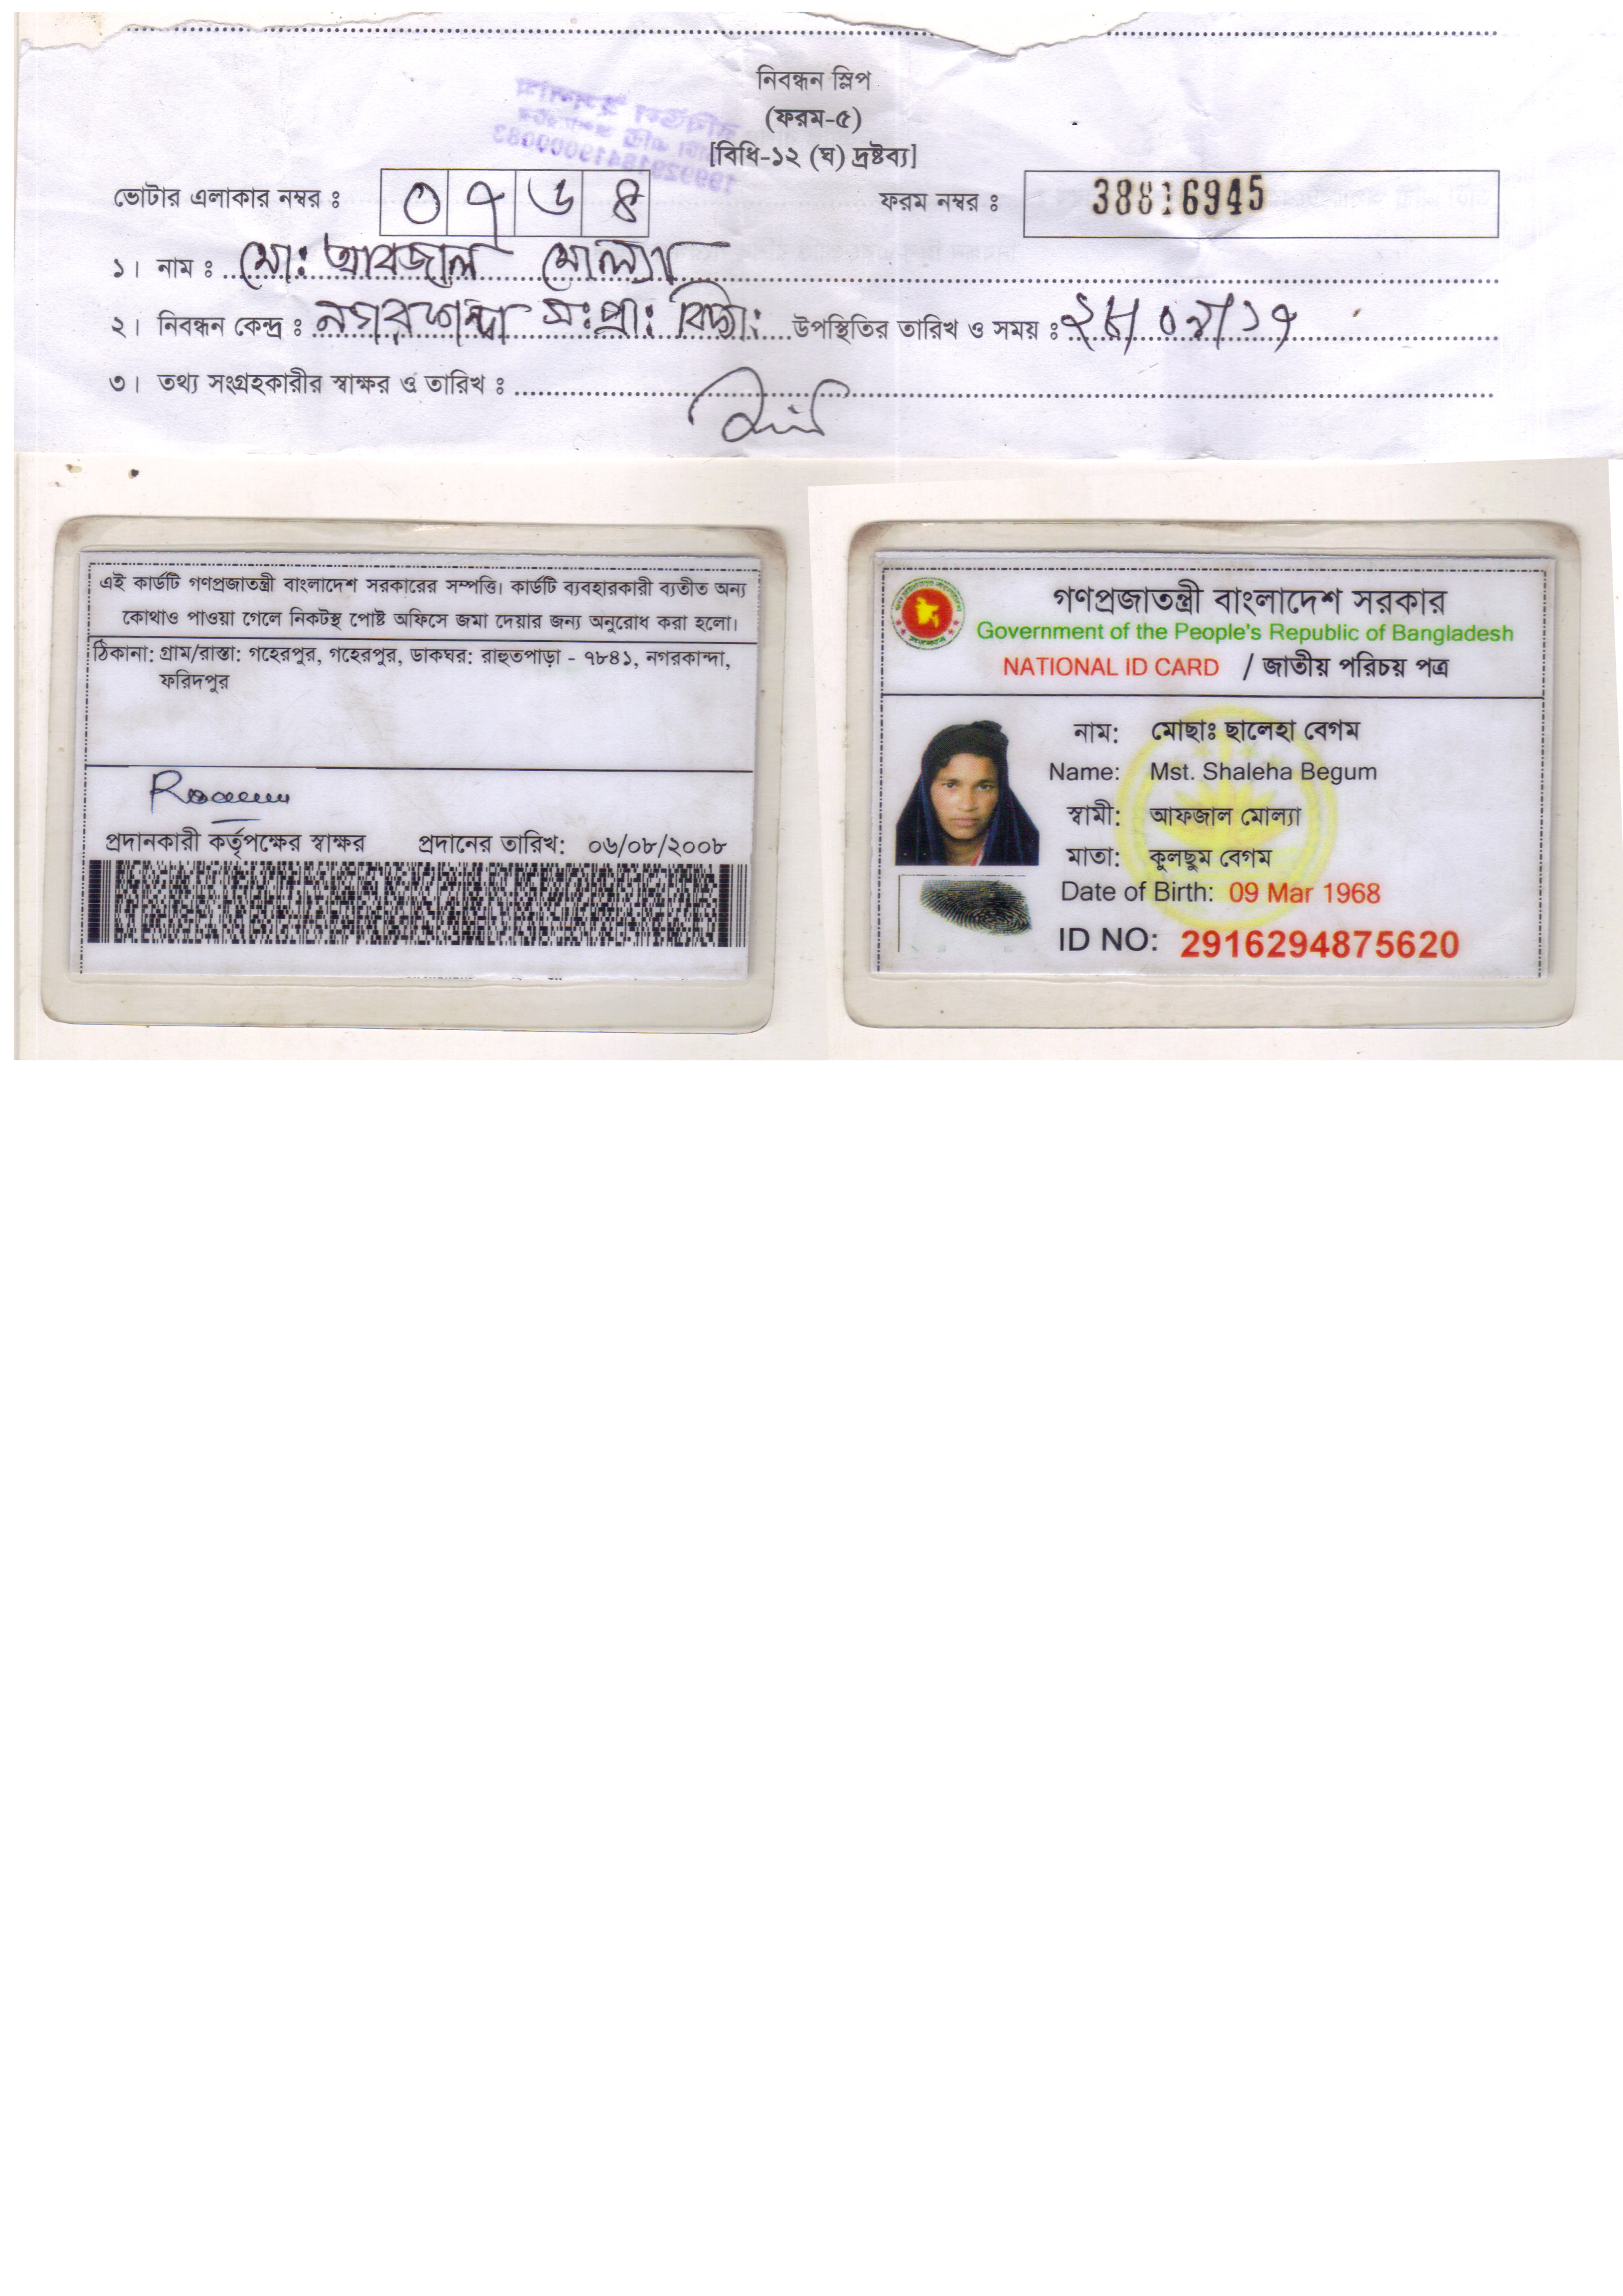 নিবন্ধন স্লিপ
(ফরম-৫)
[বিধি-১২ (ঘ) দ্রষ্টব্য]
ভোটার এলাকার নম্বর ঃ ০ ৭ ৬ ৪ ফরম নম্বর ঃ 38816945
১। নাম ঃ মোঃ আবজাল মোল্যা
২। নিবন্ধন কেন্দ্র ঃ নগরকান্দা সঃ প্রাঃ বিদ্যাঃ উপস্থিতির তারিখ ও সময় ঃ ২৮/০৯/১৭
৩। তথ্য সংগ্রহকারীর স্বাক্ষর ও তারিখ ঃ
এই কার্ডটি গণপ্রজাতন্ত্রী বাংলাদেশ সরকারের সম্পত্তি। কার্ডটি ব্যবহারকারী ব্যতীত অন্য
কোথাও পাওয়া গেলে নিকটস্থ পোষ্ট অফিসে জমা দেয়ার জন্য অনুরোধ করা হলো।
ঠিকানা: গ্রাম/রাস্তা: গহেরপুর, গহেরপুর, ডাকঘর: রাহুতপাড়া - ৭৮৪১, নগরকান্দা,
ফরিদপুর
প্রদানকারী কর্তৃপক্ষের স্বাক্ষর প্রদানের তারিখ: ০৬/০৮/২০০৮
গণপ্রজাতন্ত্রী বাংলাদেশ সরকার
Government of the People's Republic of Bangladesh
NATIONAL ID CARD / জাতীয় পরিচয় পত্র
নাম: মোছাঃ ছালেহা বেগম
Name: Mst. Shaleha Begum
স্বামী: আফজাল মোল্যা
মাতা: কুলছুম বেগম
Date of Birth: 09 Mar 1968
ID NO: 2916294875620